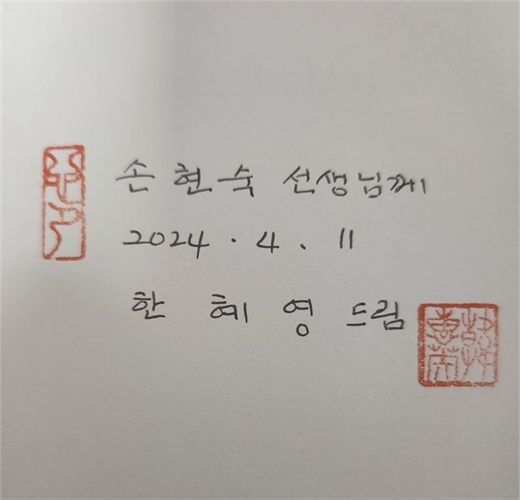 손현숙 선생님께
2024. 4. 11
한 혜 영 드림